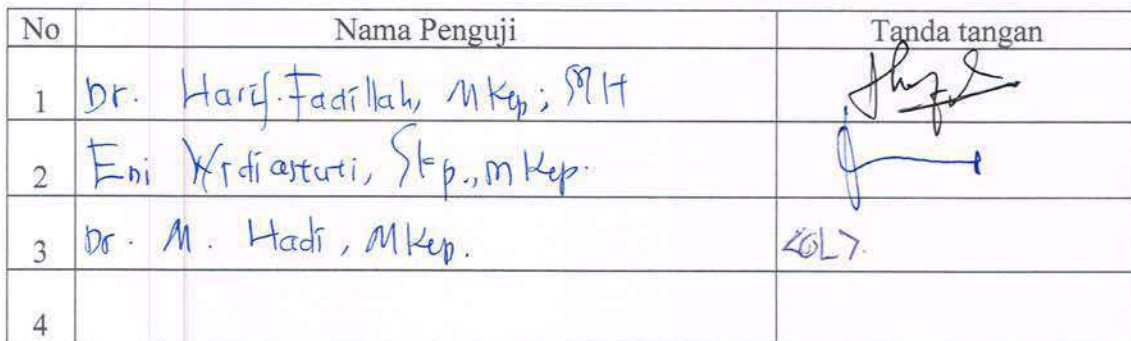 No Nama Penguji Tanda tangan
1 Dr. Harif Fadillah, MKep; SH MH
2 Eni Widiastuti, SKp., MKep.
3 Dr. M. Hadi, MKep.
4